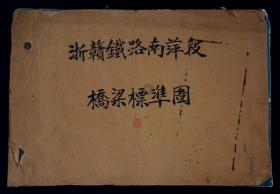 浙贛鐵路南萍段
橋梁標準圖